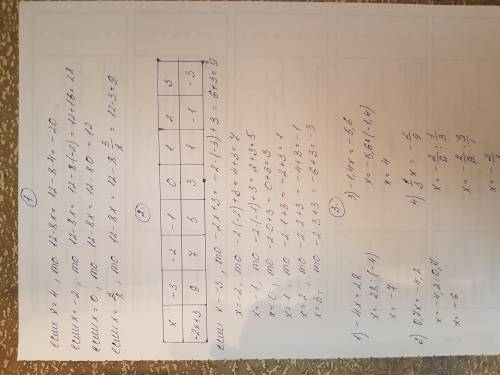 1
если x = 4, то 12-8x = 12-8·4 = -20
если x = -2, то 12-8x = 12-8·(-2) = 12+16 = 28
если x = 0, то 12-8x = 12-8·0 = 12
если x = 3/8, то 12-8x = 12-8·3/8 = 12-3 = 9
2.
x -3 -2 -1 0 1 2 3
-2x+3 9 7 5 3 1 -1 -3
если x = -3, то -2x+3 = -2·(-3)+3 = 6+3 = 9
x = -2, то -2·(-2)+3 = 4+3 = 7
x = -1, то -2·(-1)+3 = 2+3 = 5
x = 0, то -2·0+3 = 0+3 = 3
x = 1, то -2·1+3 = -2+3 = 1
x = 2, то -2·2+3 = -4+3 = -1
x = 3, то -2·3+3 = -6+3 = -3
3.
1) -4x = 28
x = 28:(-4)
x = -7
2) 0,7x = -4,2
x = -4,2:0,7
x = -6
3) -1,4x = -5,6
x = -5,6:(-1,4)
x = 4
4) 1/3 x =